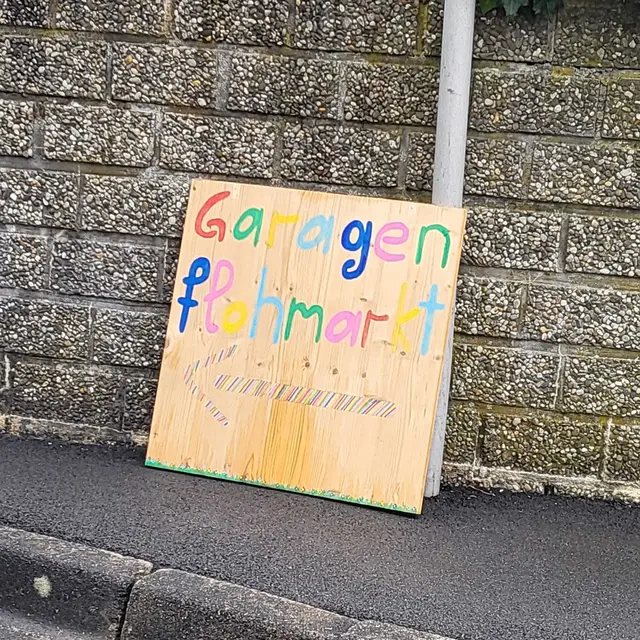 Garagen
flohmarkt